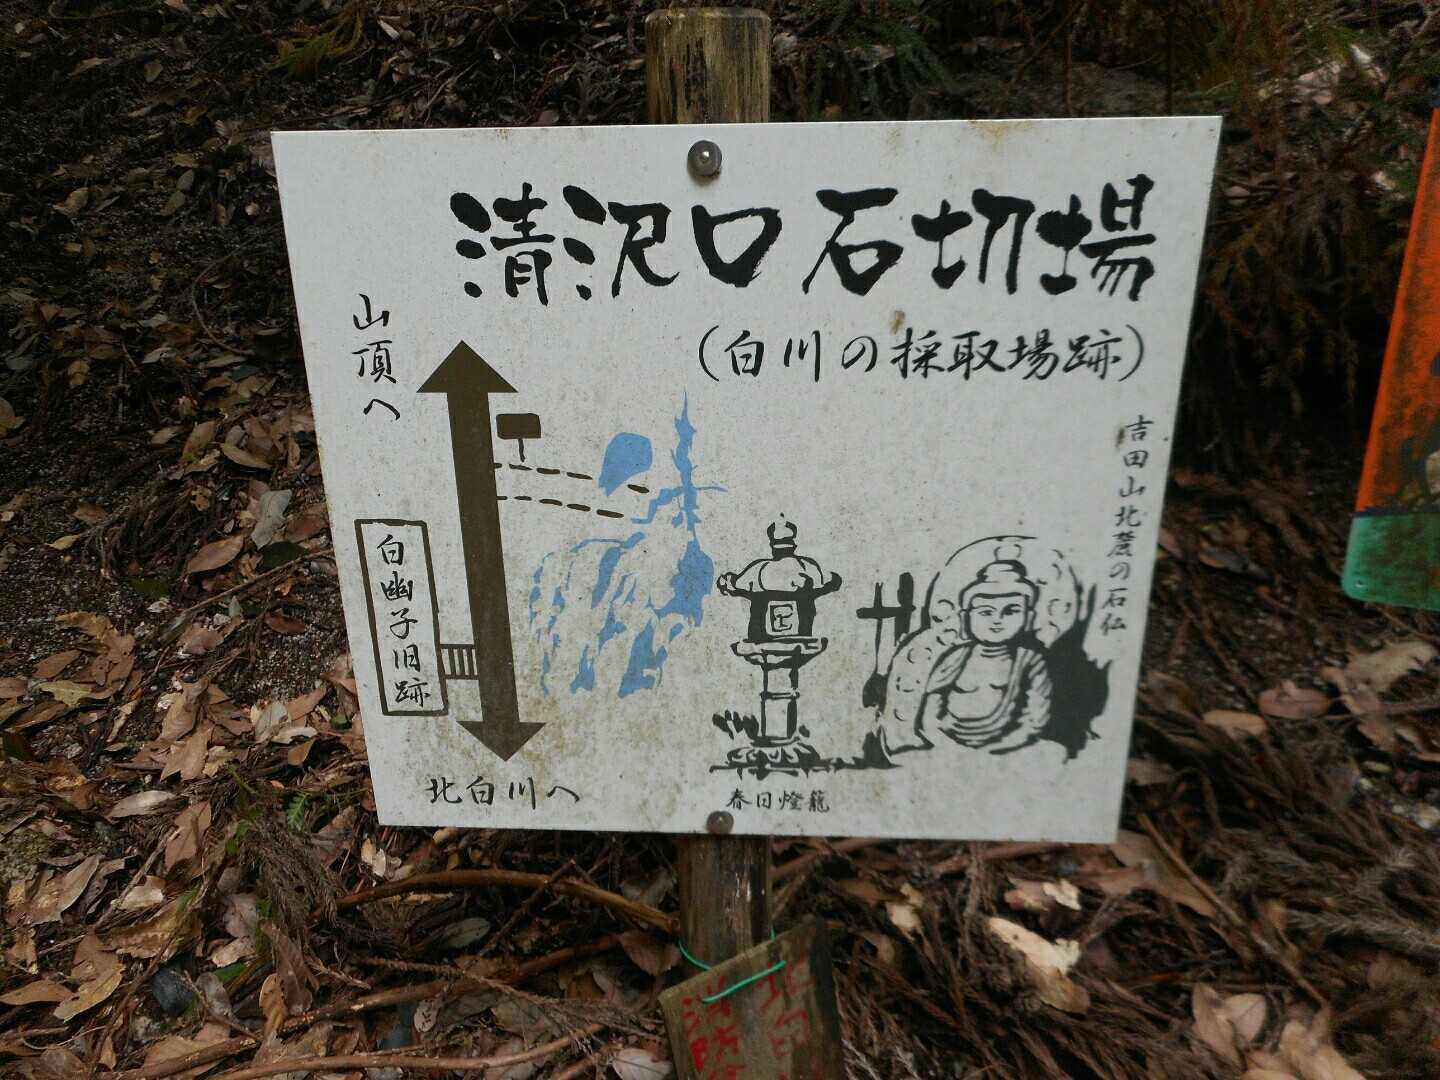 清沢口石切場
(白川の採取場跡)
山頂へ
白幽子旧跡
北白川へ
吉田山北麓の石仏
春日燈籠
北白